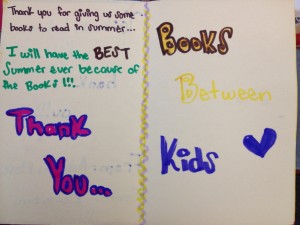 Thank you for giving us some
books to read in summer...
I will have the BEST
Summer ever because of
the Books!!!..
Thank
You...
Books
Between
Kids